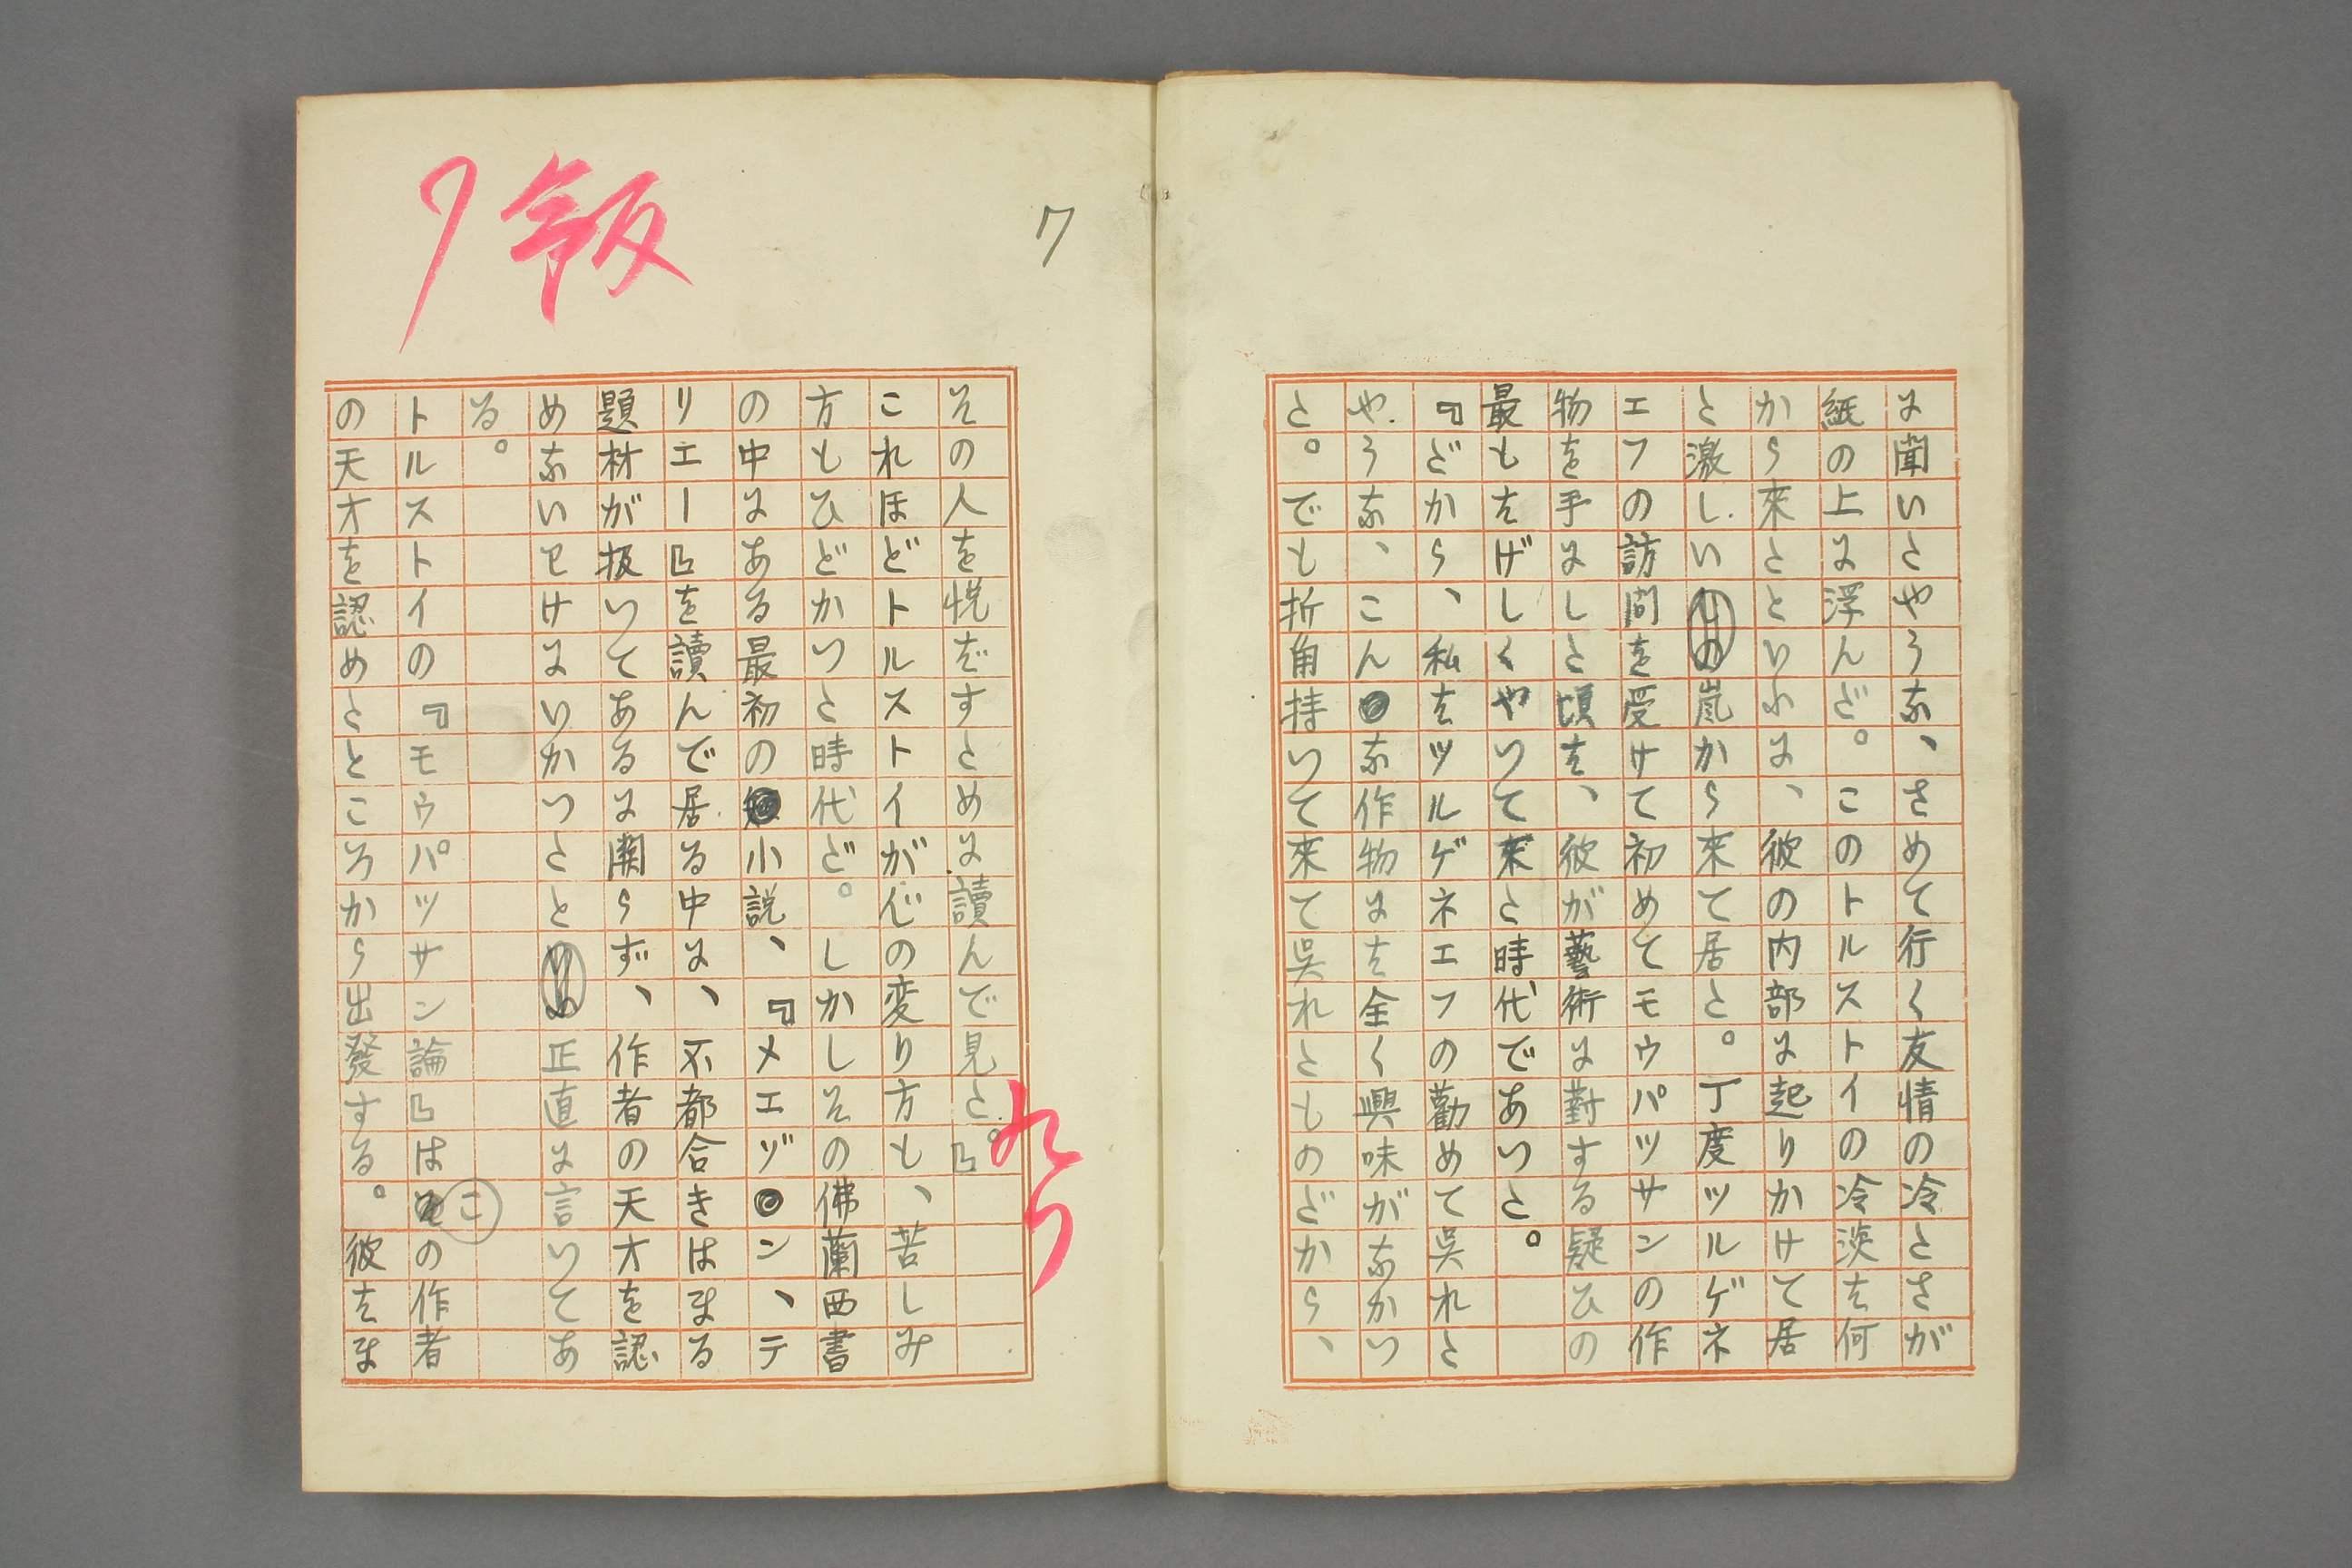 に聞いたやうな、さめて行く友情の冷たさが
紙の上に浮んだ。このトルストイの冷淡は何
から來たといふに、彼の内部に起りかけて居
た激しい嵐から來て居た。丁度ツルゲネ
エフの訪問を受けて初めてモウパツサンの作
物を手にした頃は、彼が藝術に對する疑ひの
最もはげしくやつて來た時代であつた。
『だから、私はツルゲネエフの勸めて呉れた
やうな、こんな作物には全く興味がなかつ
た。でも折角持つて來て呉れたものだから、
7
その人を悦ばすために讀んで見た。』
これほどトルストイが心の変り方も、苦しみ
方もひどかつた時代だ。しかしその佛蘭西書
の中にある最初の小説、『メエゾン、テ
リエー』を讀んで居る中に、不都合きはまる
題材が扱つてあるに關らず、作者の天才を認
めないわけにいかつたと正直に言つてあ
る。
トルストイの『モウパツサン論』はこの作者
の天才を認めたところから出發する。彼はま